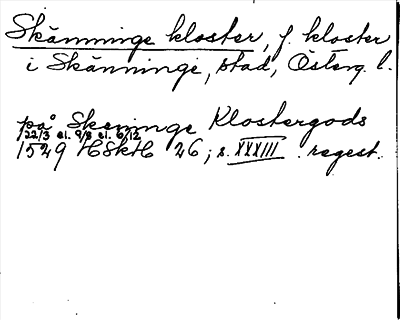 Skänninge kloster, f. kloster
i Skänninge, stad, Österg. l.
på Skeninge Klostergods
22/3 el. 9/8 el. 6/12
1529 HSkH 26; s. XXXIII. regest.